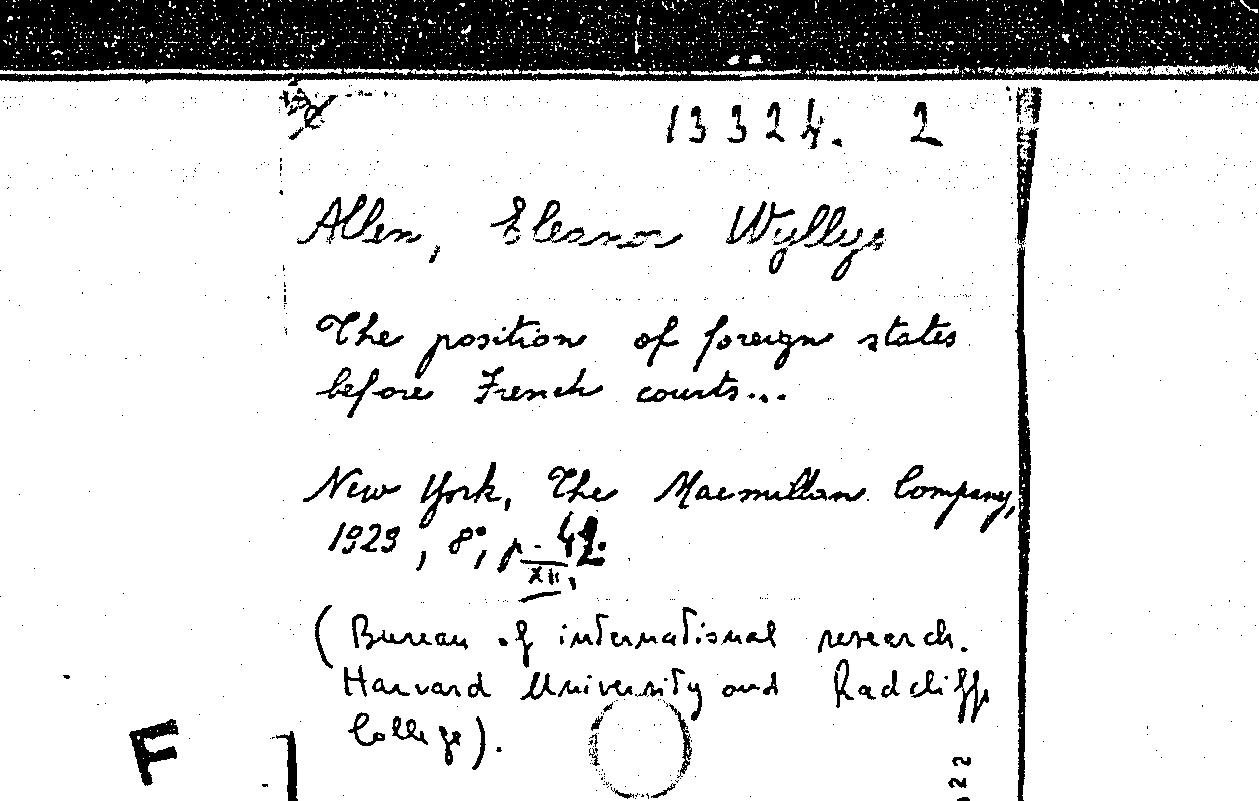 13324. 2
Allen, Eleanor Wyllys
The position of foreign states
before French courts...
New York, The Macmillan Company,
1929, 8°, p. 42.
XII,
(Bureau of international research.
Harvard University and Radcliffe
College).
F
22